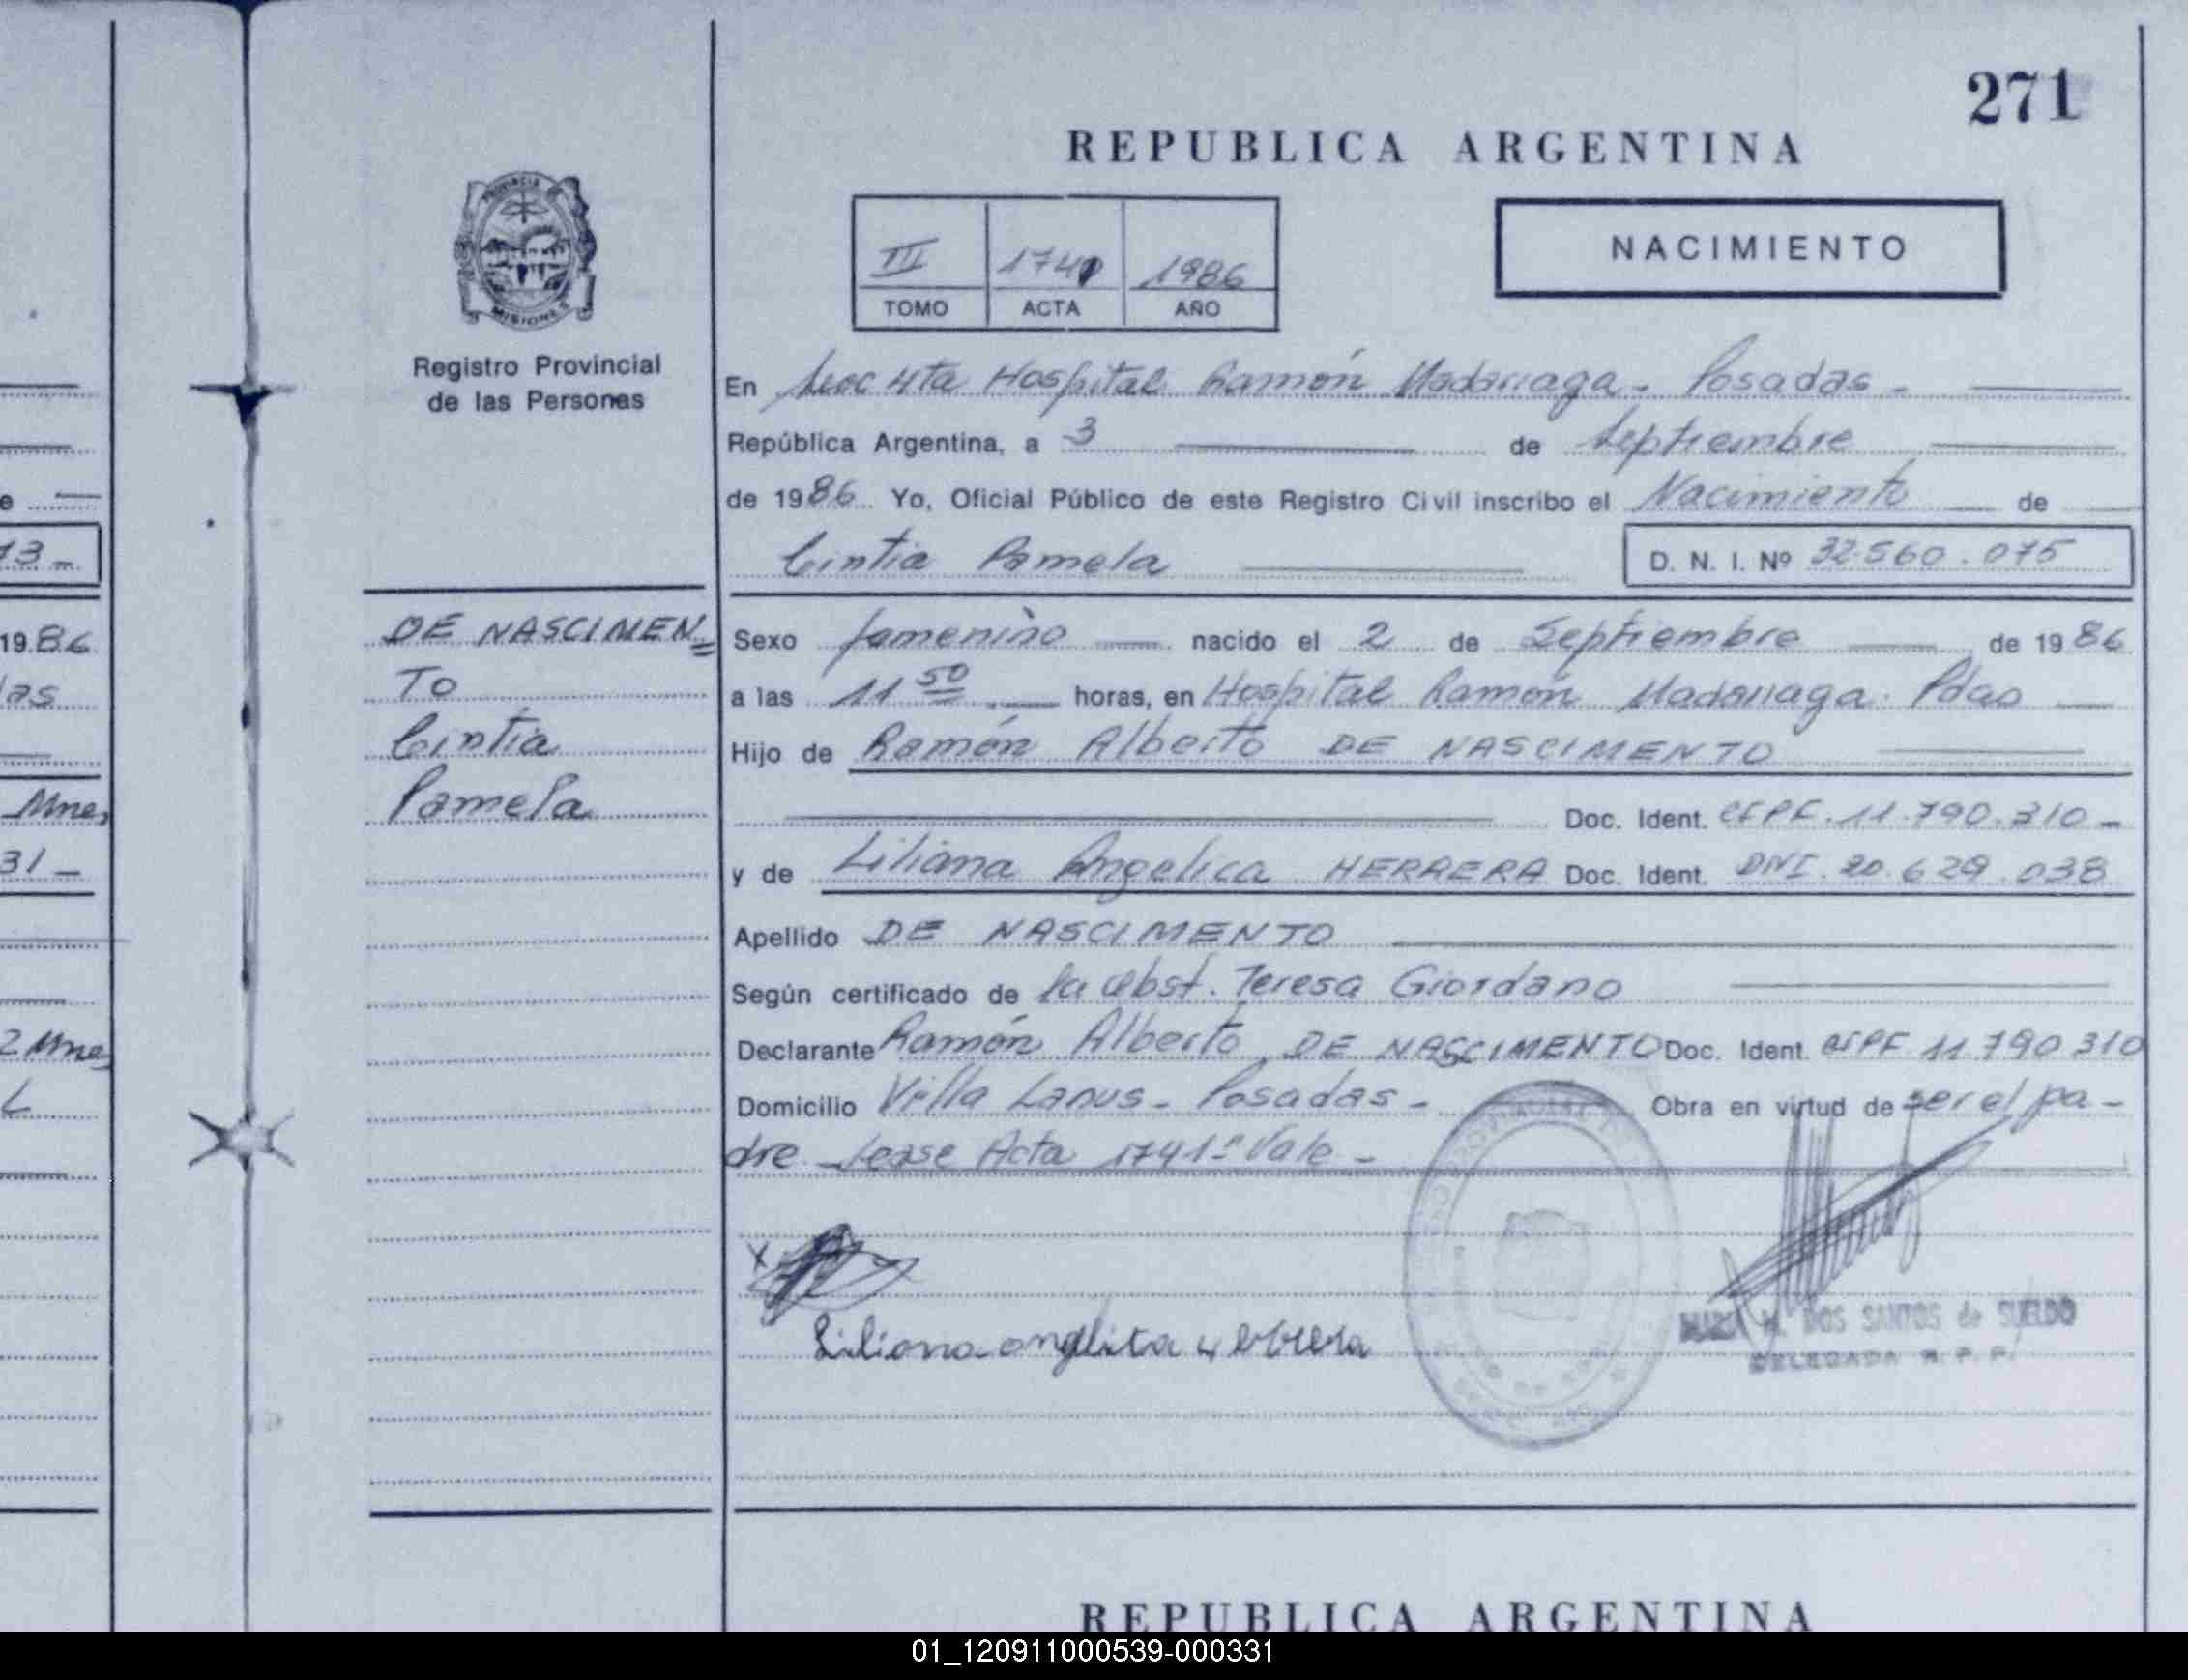 271
REPUBLICA ARGENTINA
III 1741 1986
TOMO ACTA AÑO
NACIMIENTO
PROVINCIA DE
MISIONES
Registro Provincial
de las Personas
En Secc 4ta Hospital Ramón Madariaga - Posadas -
República Argentina, a 3 de Septiembre
de 1986 Yo, Oficial Público de este Registro Civil inscribo el Nacimiento de
Cintia Pamela D. N. I. Nº 32.560.075
DE NASCIMEN=
TO
Cintia
Pamela
Sexo femenino nacido el 2 de Septiembre de 1986
a las 11 50 horas, en Hospital Ramón Madariaga. Pdas
Hijo de Ramón Alberto DE NASCIMENTO
Doc. Ident. CIPF. 11.790.310 -
y de Liliana Angelica HERRERA Doc. Ident. DNI. 20.629.038
Apellido DE NASCIMENTO
Según certificado de la Obst. Teresa Giordano
Declarante Ramón Alberto DE NASCIMENTO Doc. Ident. CIPF 11 790 310
Domicilio Villa Lanus - Posadas - Obra en virtud de ser el pa-
dre - Lease Acta 1741 - Vale -
X
Liliana
DOS SANTOS de SUELDO
DELEGADA R. P. P.
REPUBLICA ARGENTINA
13 -
1986
as
Mnes
31 -
2 Mnes
L
01_120911000539-000331